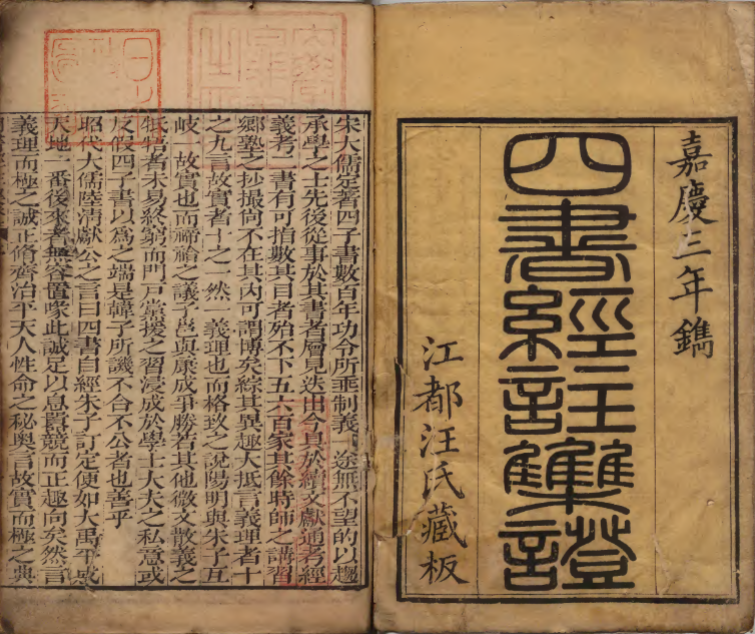 嘉慶三年鐫
四書經註雧證
江都汪氏藏板
宋大儒定著四子書數百年功令所乘制義一途無不望的以趨
承學之士先後從事於其書者層見迭出今具於續文獻通考經
義考二書有可指數其目者殆不下五六百家其餘時師之講習
鄉塾之抄撮尙不在其内可謂博矣綜其異趣大抵言義理者十
之九言故實者十之一然一義理也而格致之說陽明與朱子互
岐一故實也而禘祫之議子邕與康成爭勝若其他徵文散義之
牴牾者未易終窮而門戸黨援之習浸成於學士大夫之私意或
反假四子書以爲之端是韓子所譏不合不公者也善乎
昭代大儒陸淸獻公之言曰四書自經朱子訂定便如大禹平成
天地一番後來者無容置喙此誠足以息囂競而正趣向矣然言
義理而極之誠正脩齊治平天人性命之秘奥言故實而極之典